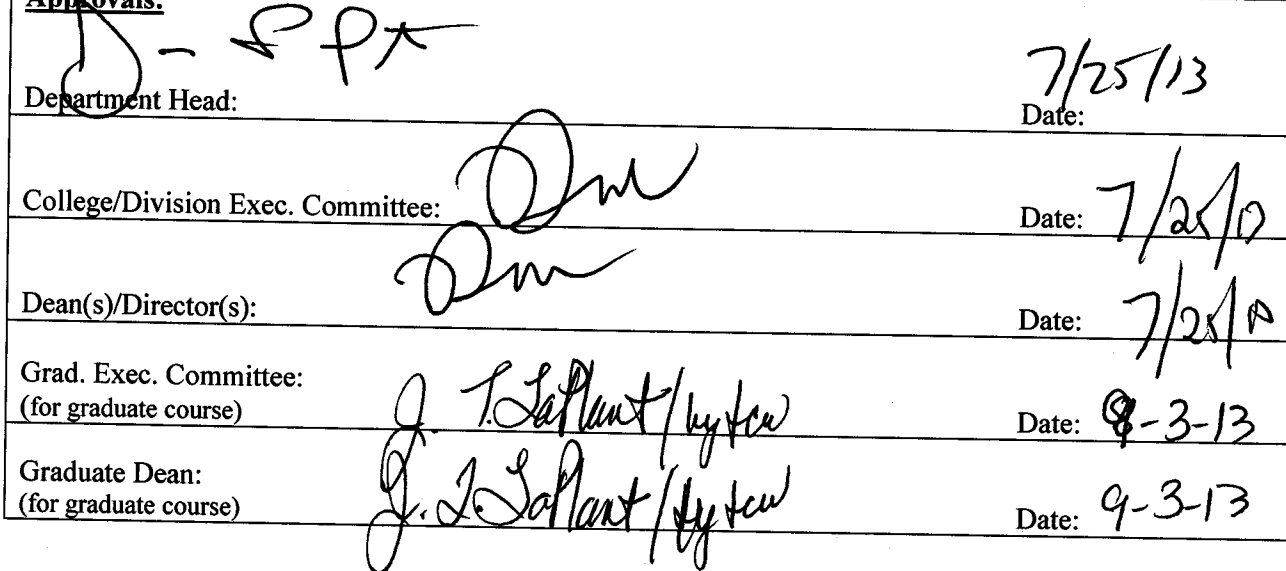 Approvals:
Department Head:
7/25/13
Date:
College/Division Exec. Committee:
Date: 7/25/13
Dean(s)/Director(s):
Date: 7/25/13
Grad. Exec. Committee:
(for graduate course)
J. T. LaPlant/by tcw
Date: 9-3-13
Graduate Dean:
(for graduate course)
J. T. LaPlant/by tcw
Date: 9-3-13